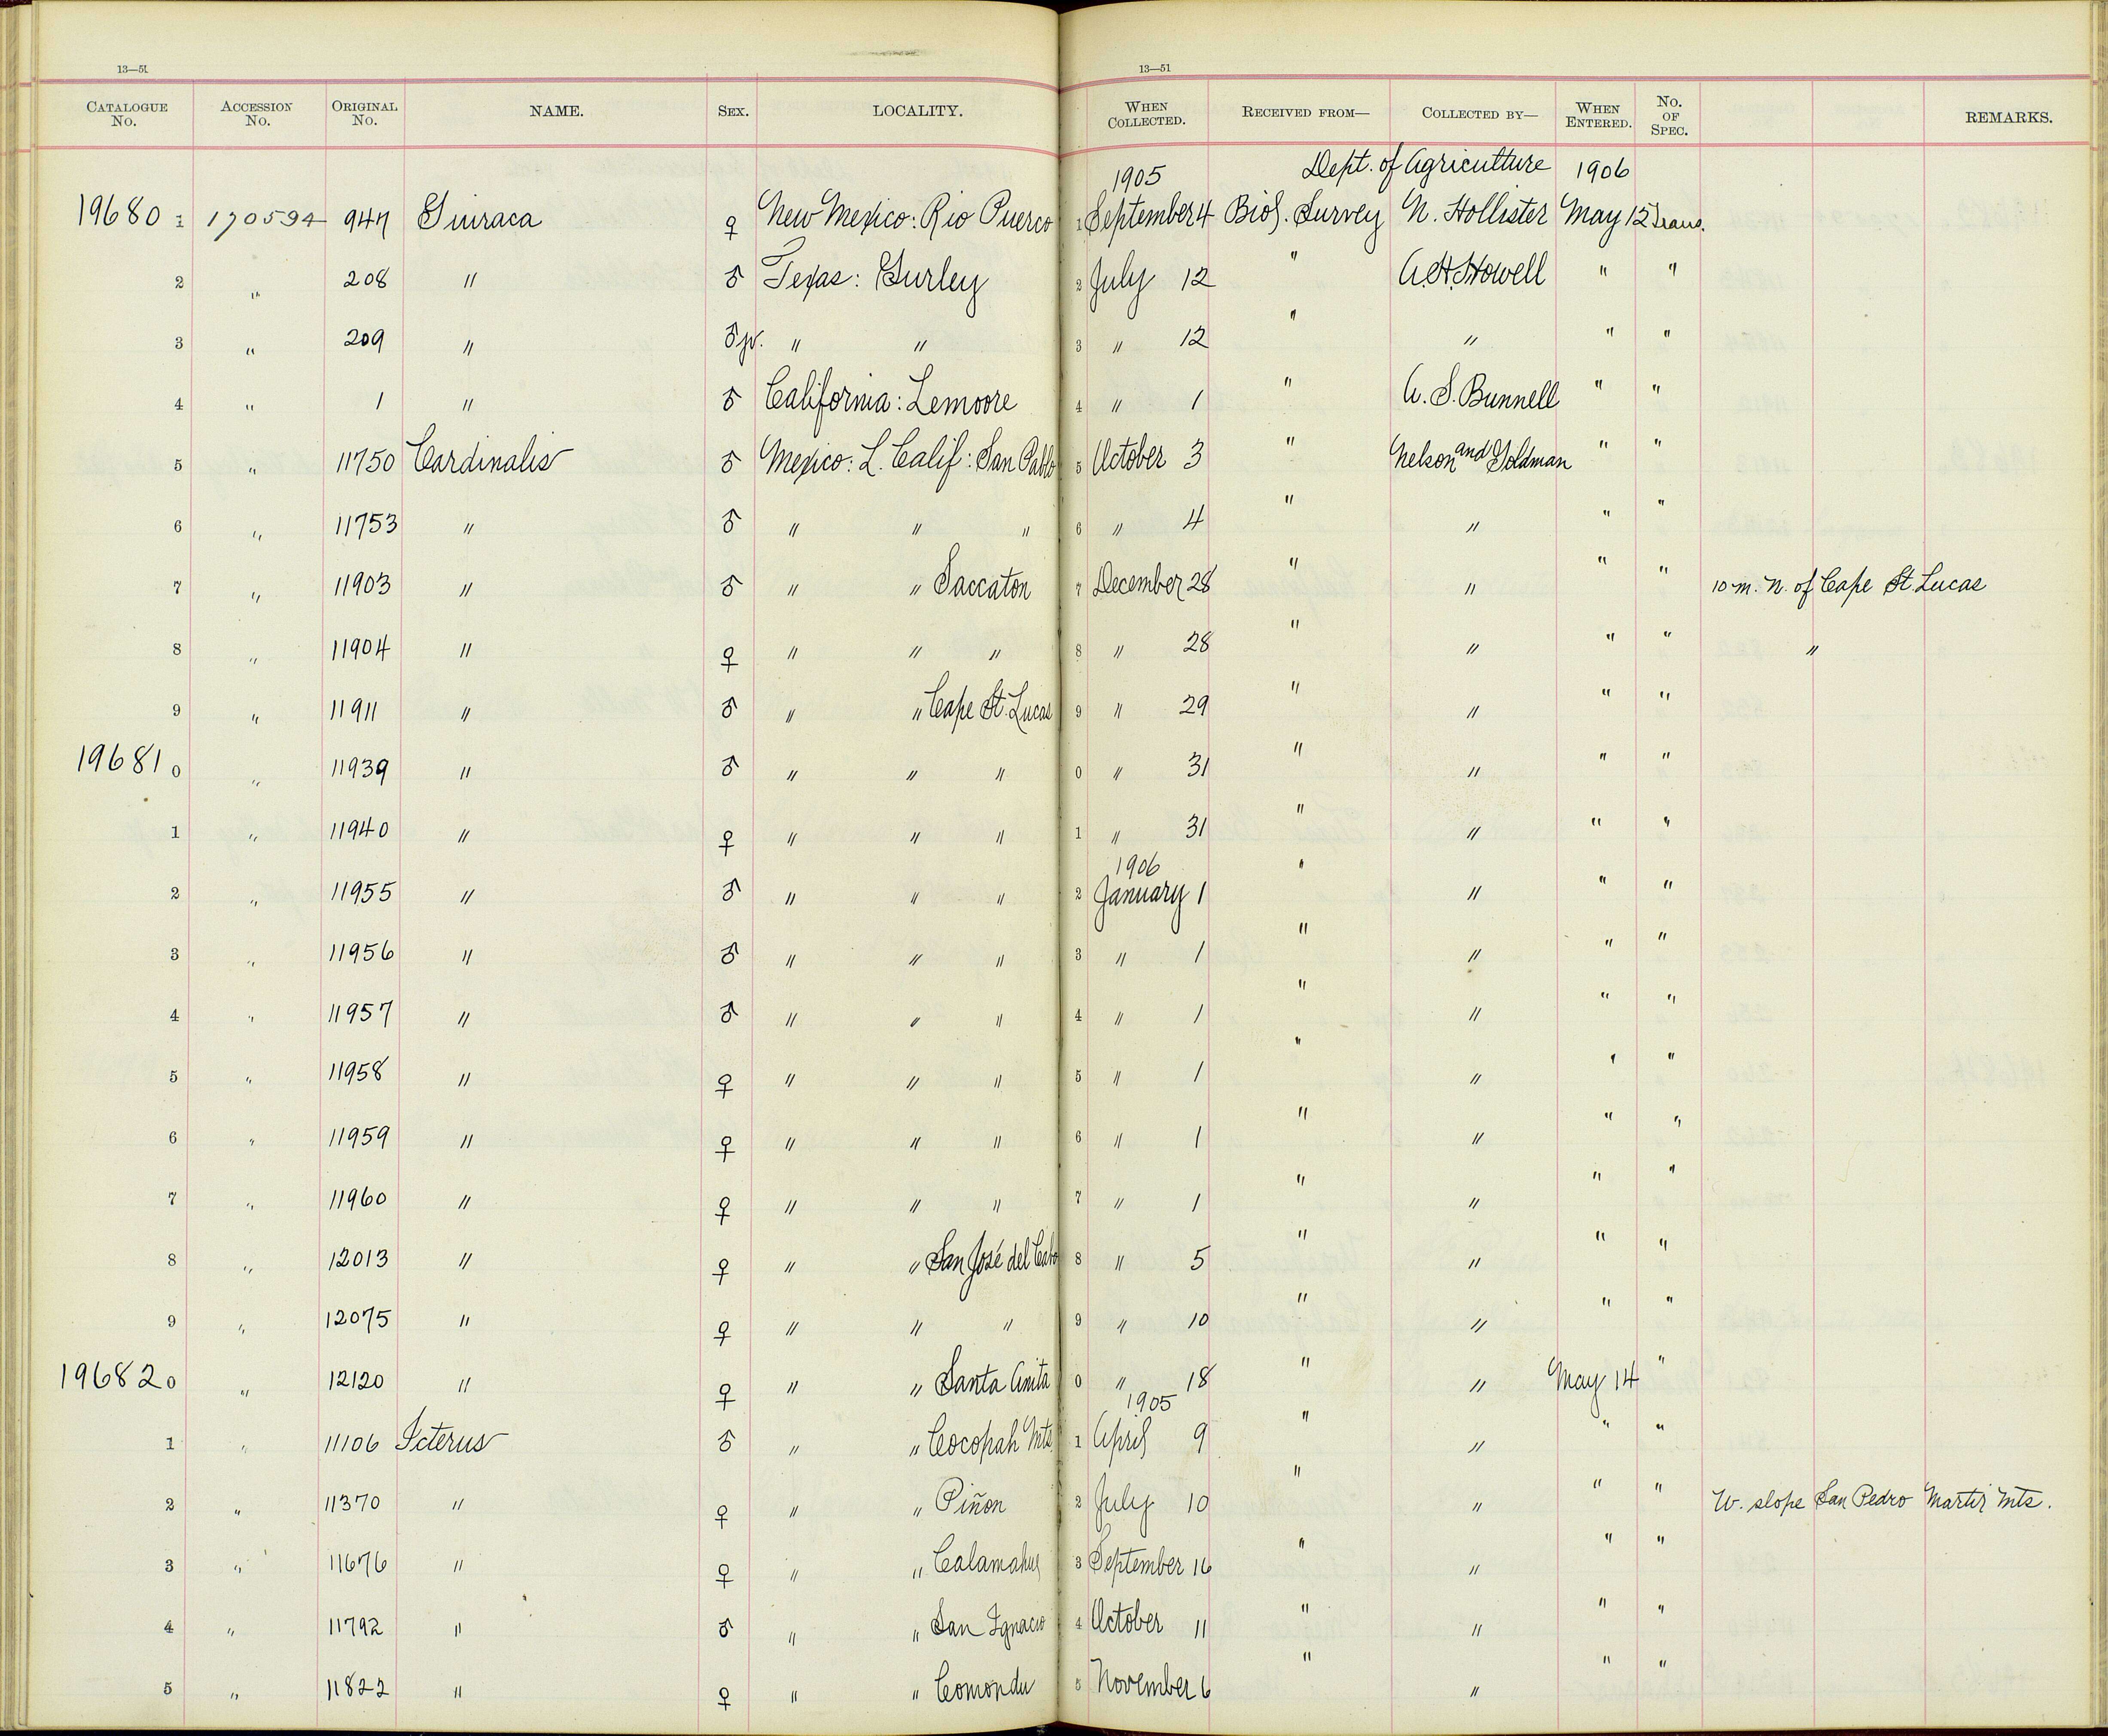 13—51 13—51
CATALOGUE No. ACCESSION No. ORIGINAL No. NAME. SEX. LOCALITY. WHEN COLLECTED. RECEIVED FROM— COLLECTED BY— WHEN ENTERED. No. OF SPEC. REMARKS.
1905 Dept. of Agriculture 1906
19680 1 170594 947 Guiraca ♀ New Mexico: Rio Puerco 1 September 4 Biol. Survey N. Hollister May 12 Trans.
2 " 208 " ♂ Texas: Gurley 2 July 12 " A.H. Howell " "
3 " 209 " ♂ jv. " " 3 " 12 " " " "
4 " 1 " ♂ California: Lemoore 4 " 1 " A. S. Bunnell " "
5 " 11750 Cardinalis ♂ Mexico: L. Calif: San Pablo 5 October 3 " Nelson and Goldman " "
6 " 11753 " ♂ " " " 6 " 4 " " " "
7 " 11903 " ♂ " " Saccaton 7 December 28 " " " " 10 m. N. of Cape St. Lucas
8 " 11904 " ♀ " " " 8 " 28 " " " " "
9 " 11911 " ♂ " " Cape St. Lucas 9 " 29 " " " "
19681 0 " 11939 " ♂ " " " 0 " 31 " " " "
1 " 11940 " ♀ " " " 1 " 31 " " " "
1906
2 " 11955 " ♂ " " " 2 January 1 " " " "
3 " 11956 " ♂ " " " 3 " 1 " " " "
4 " 11957 " ♂ " " " 4 " 1 " " " "
5 " 11958 " ♀ " " " 5 " 1 " " " "
6 " 11959 " ♀ " " " 6 " 1 " " " "
7 " 11960 " ♀ " " " 7 " 1 " " " "
8 " 12013 " ♀ " " San José del Cabo 8 " 5 " " " "
9 " 12075 " ♀ " " " 9 " 10 " " " "
19682 0 " 12120 " ♀ " " Santa Anita 0 " 18 " " May 14 "
1905
1 " 11106 Icterus ♂ " " Cocopah Mts 1 April 9 " " " "
2 " 11370 " ♀ " " Piñon 2 July 10 " " " " W. slope San Pedro Martir Mts.
3 " 11676 " ♀ " " Calamahue 3 September 16 " " " "
4 " 11792 " ♂ " " San Ignacio 4 October 11 " " " "
5 " 11822 " ♀ " " Comondu 5 November 6 " " " "